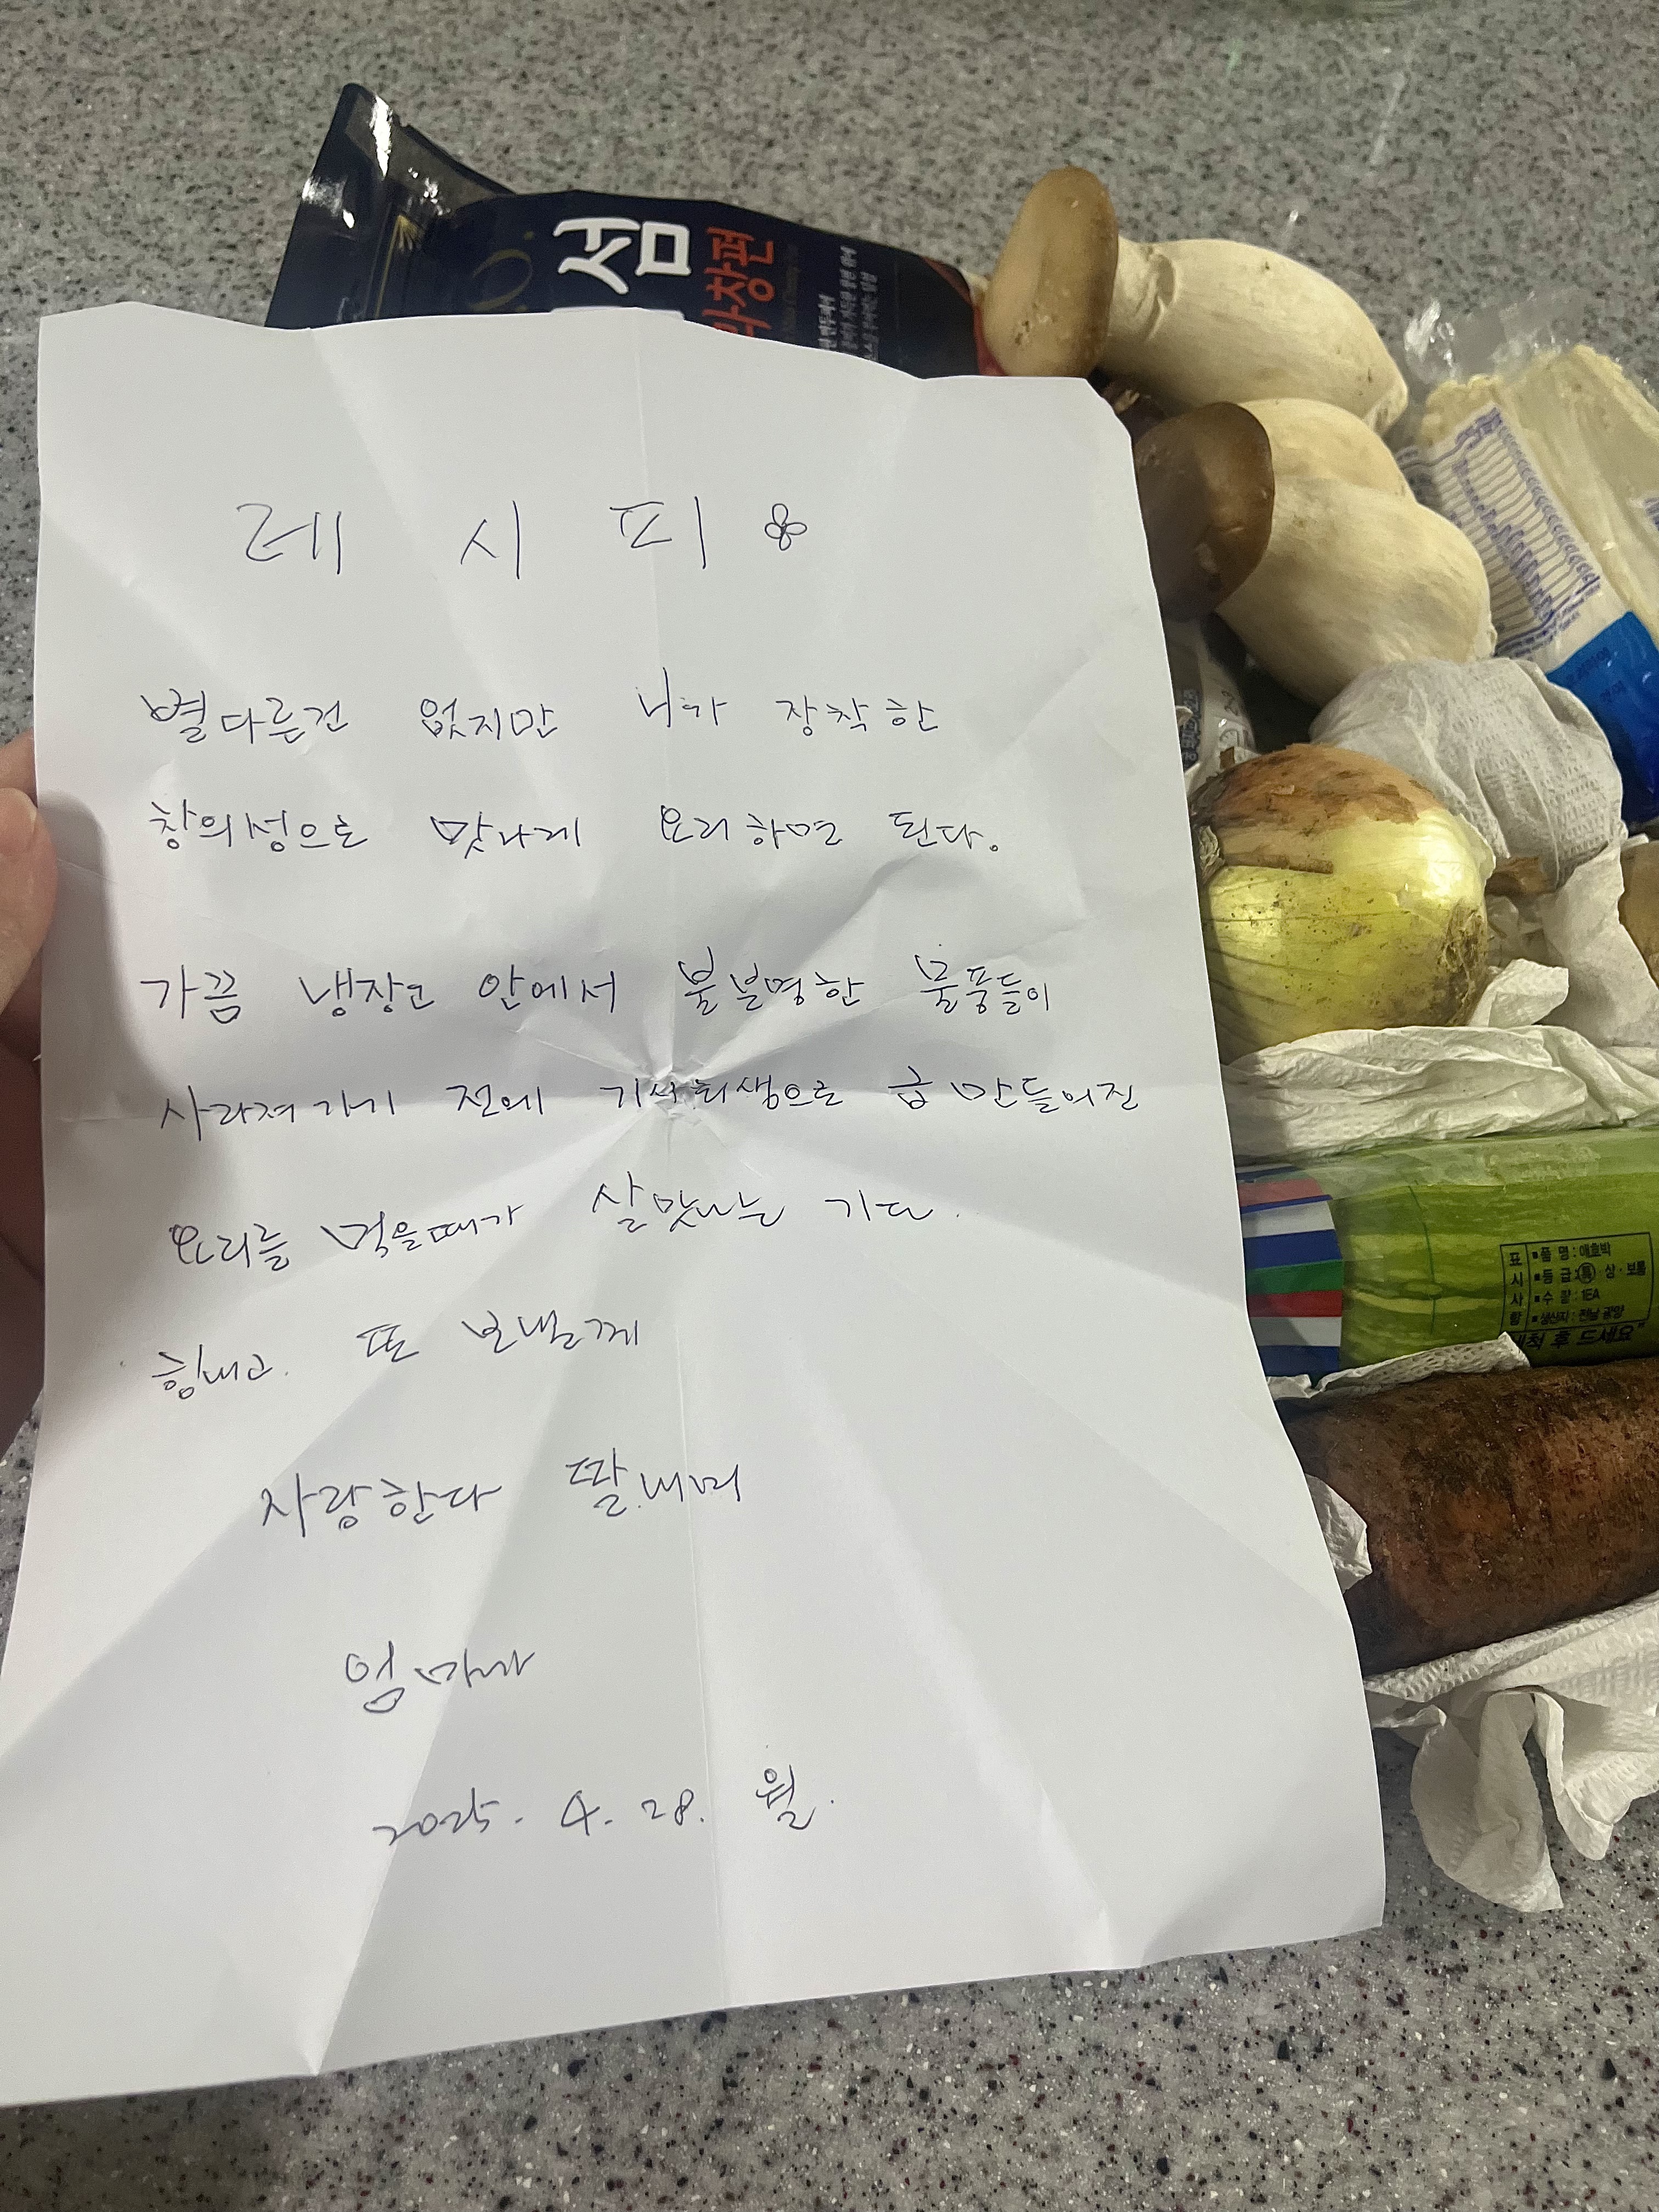 섬
마창편
레 시 피
별다른건 없지만 니가 장착한
창의성으로 맛나게 요리하면 된다.
가끔 냉장고 안에서 불분명한 물품들이
사라져가기 전에 기사회생으로 급 만들어진
요리를 먹을때가 살맛나는 기다.
힘내고. 또 보낼께
사랑한다 딸내미
엄마가
2025. 4. 28. 월.
표시사항
▪품 명 : 애호박
▪등 급 : 특 상 · 보통
▪수 량 : 1EA
▪생산지 : 전남 광양
세척 후 드세요"